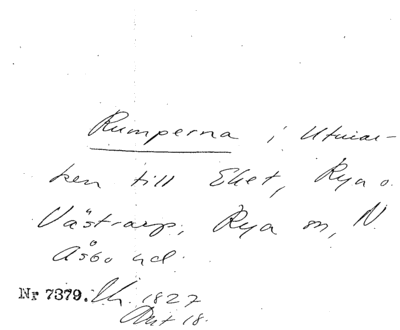 Rumperna i Utmar-
ken till Eket, Rya o.
Västraup, Rya sn, N.
Åsbo hd.
Nr 7379. Lh. 1827
Akt 18.